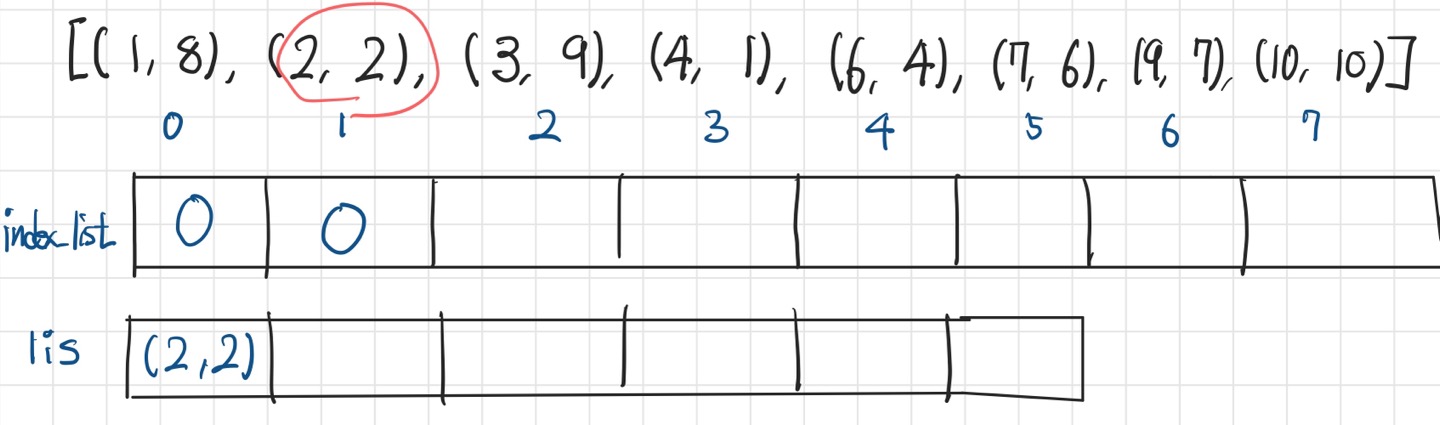 [(1, 8), (2, 2), (3, 9), (4, 1), (6, 4), (7, 6), (9, 7), (10, 10)]
0 1 2 3 4 5 6 7
index_list 0 0
lis (2,2)